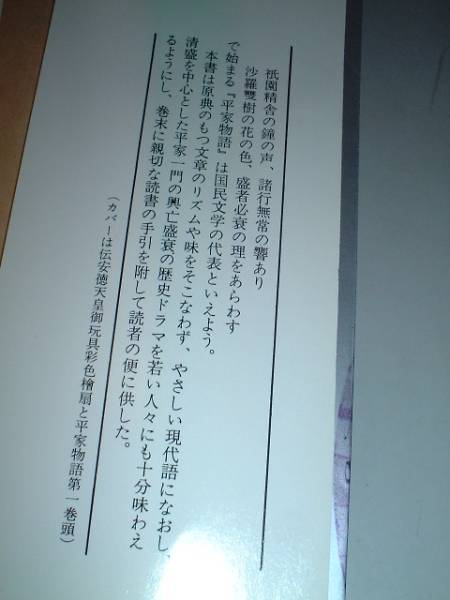 祇園精舎の鐘の声、諸行無常の響あり
沙羅雙樹の花の色、盛者必衰の理をあらわす
で始まる『平家物語』は国民文学の代表といえよう。
本書は原典のもつ文章のリズムや味をそこなわず、やさしい現代語になおし、
清盛を中心とした平家一門の興亡盛衰の歴史ドラマを若い人々にも十分味わえ
るようにし、巻末に親切な読書の手引を附して読者の便に供した。
（カバーは伝安徳天皇御玩具彩色檜扇と平家物語第一巻頭）